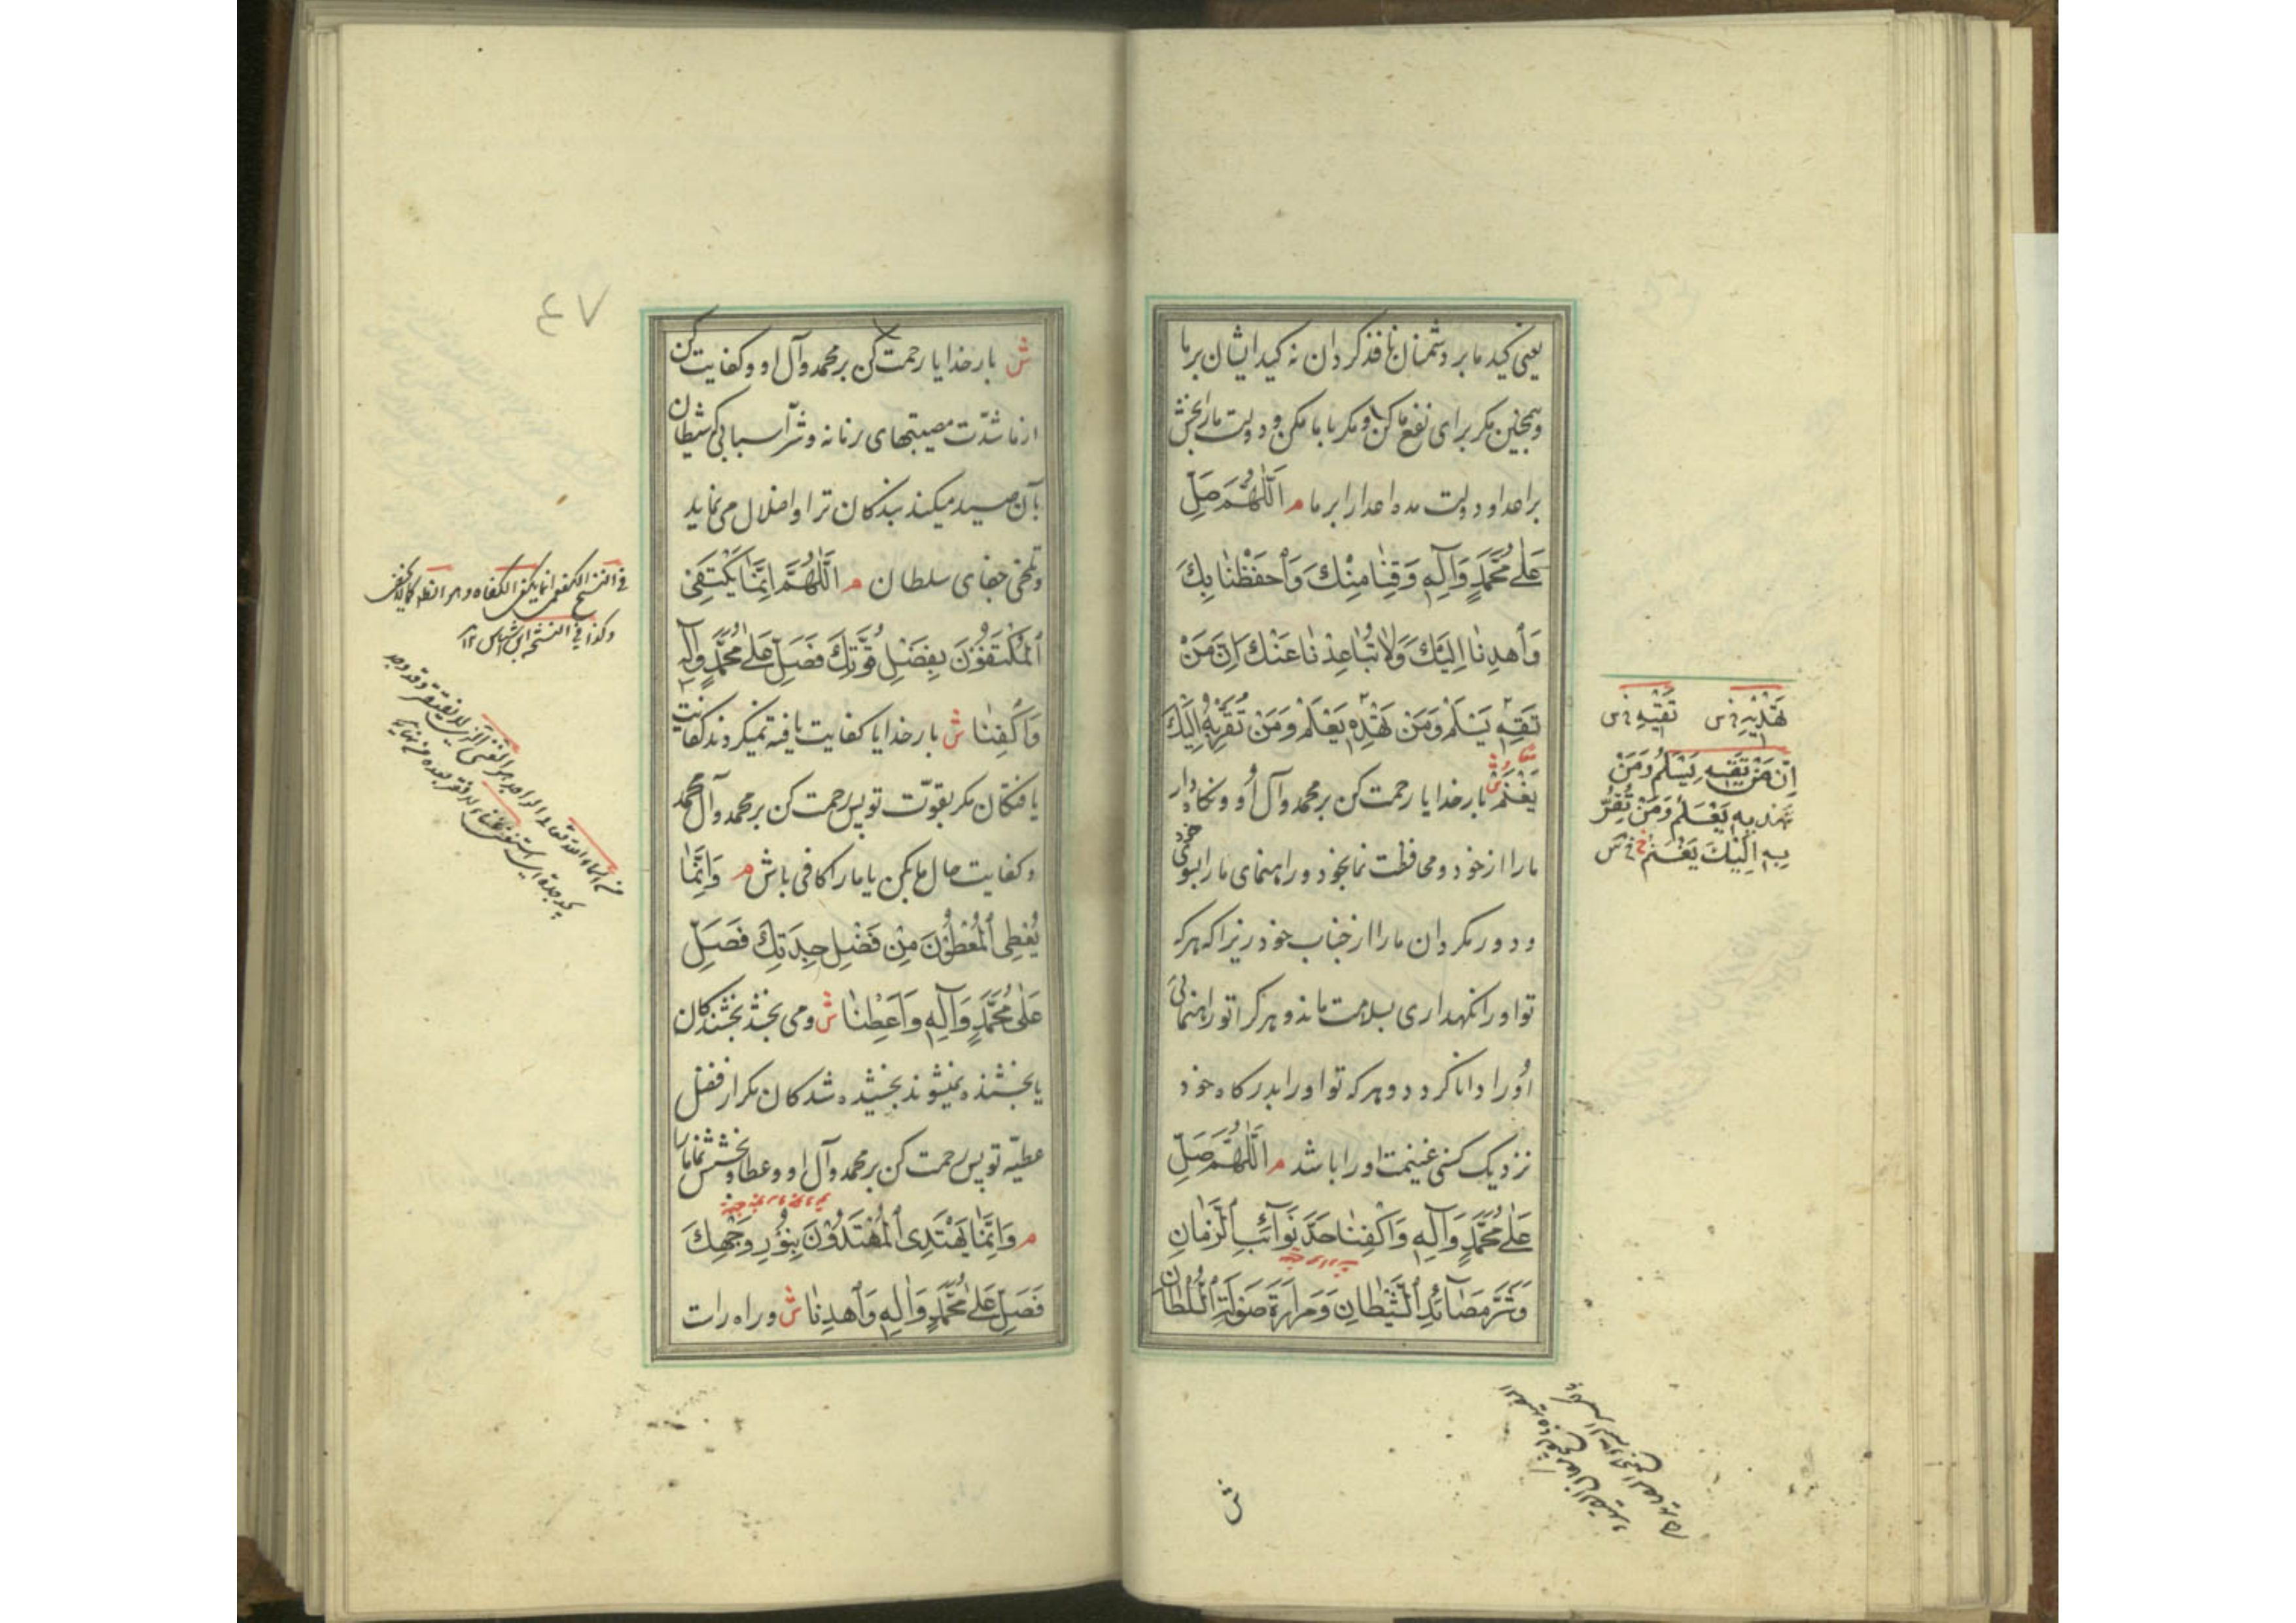 یعنی کید ما بر دشمنان نافذ کردان نه کید ایشان بر ما
و همچنین مکر برای نفع ما کن و مکر با ما مکن و دولت ما را بخش
بر اعدا و دولت مده اعدا را بر ما م اَللّٰهُمَّ صَلِّ
عَلٰى مُحَمَّدٍ وَآلِهِ وَقِنٰا مِنْكَ وَاحْفَظْنٰا بِكَ
وَاهْدِنٰا اِلَيْكَ وَلٰا تُبٰاعِدْنٰا عَنْكَ اِنَّ مَنْ
تَقِهِ يَسْلَمْ وَمَنْ تَهْدِهِ يَعْلَمْ وَمَنْ تُقَرِّبْهُ اِلَيْكَ
يَغْنَمْ ش بار خدایا رحمت کن بر محمد و آل او و نکاه دار
ما را از خود و محافظت نما بخود و راهنمای ما را بسوی خود
و دور مکردان ما را از جناب خود زیرا که هر که
تو او را نکهداری بسلامت ماند و هر کرا تو راهنمائی
او را دانا کردد و هر که تو او را بدرکاه خود
نزدیک کنی غنیمت او را باشد م اَللّٰهُمَّ صَلِّ
عَلٰى مُحَمَّدٍ وَآلِهِ وَاكْفِنٰا حَدَّ نَوٰآئِبِ الزَّمٰانِ
وَشَرَّ مَصٰآئِدِ الشَّيْطٰانِ وَمَرٰارَةَ صَوْلَةِ السُّلْطٰانِ
تَهْدِيهِ فی س تَقِيهِ فی س
اِنَّ مَنْ تَقِيهِ يَسْلَمُ وَمَنْ
تَهْدِيهِ يَعْلَمُ وَمَنْ تُقَرِّ
بِهِ اِلَيْكَ يَغْنَمُ خ فی س
ش
٤٧
ش بار خدایا رحمت کن بر محمد و آل او و کفایت کن
از ما شدّت مصیبتهای زمانه و شرّ آسبابی که شیطان
بآن صید میکند بندکان ترا و اضلال می نماید
و تلخی جفای سلطان م اَللّٰهُمَّ اِنَّمٰا يَكْتَفِي
الْمُكْتَفُونَ بِفَضْلِ قُوَّتِكَ فَصَلِّ عَلٰى مُحَمَّدٍ وَآلِهِ
وَاكْفِنٰا ش بار خدایا کفایت یافته نمیکردند کفایت
یافتکان مکر بقوّت تو پس رحمت کن بر محمد و آل محمد
و کفایت حال ما بکن یا ما را کافی باش م وَاِنَّمٰا
يُعْطِي الْمُعْطُونَ مِنْ فَضْلِ جِدَتِكَ فَصَلِّ
عَلٰى مُحَمَّدٍ وَآلِهِ وَاَعْطِنٰا ش و می بخشد بخشندکان
یا بخشنده نمیشوند بخشیده شدکان مکر از فضل
عطیّه تو پس رحمت کن بر محمد و آل او و عطا و بخشش نما ما را
م وَاِنَّمٰا يَهْتَدِي الْمُهْتَدُونَ بِنُورِ وَجْهِكَ
فَصَلِّ عَلٰى مُحَمَّدٍ وَآلِهِ وَاهْدِنٰا ش و راه راست